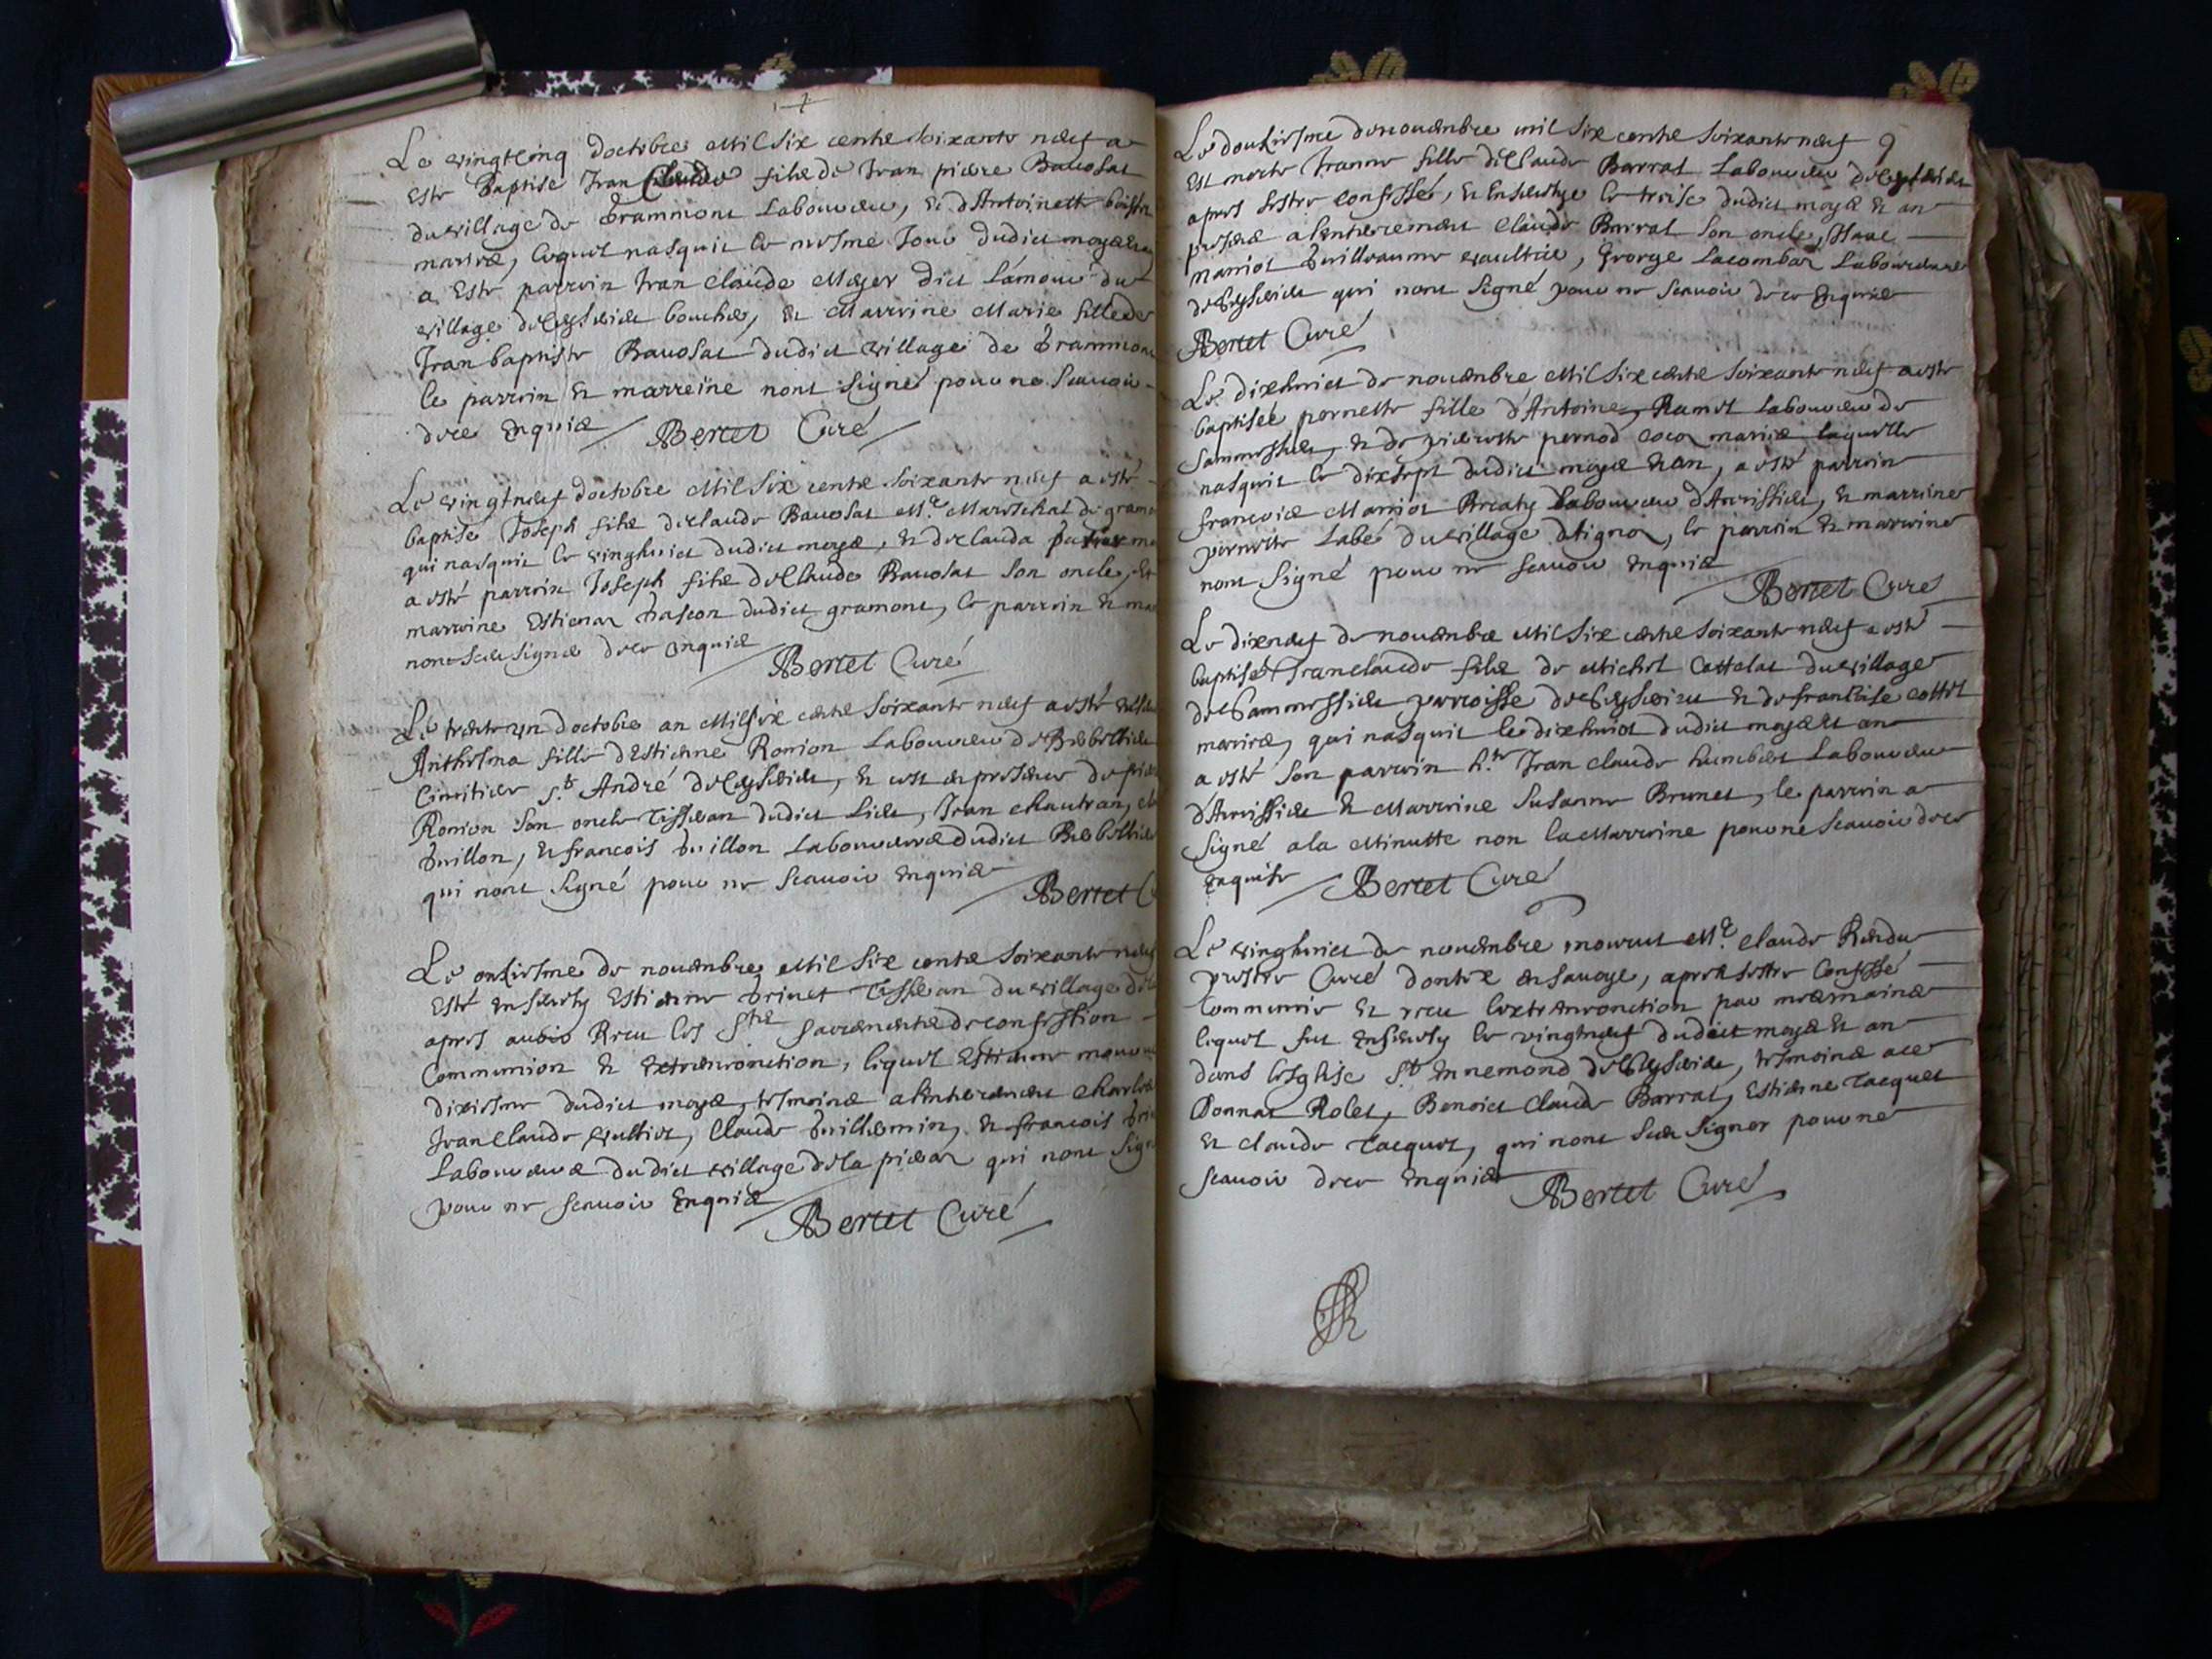 Le vingtcinq doctobre Mil Six centz Soixante neuf a
Esté Baptisé Jean Claude filz de Jean piere Bauosat
du village de Grammont Laboureur, et d'Antoinette
mariez, lequel nasquit le mesme Jour dudict moys
a Esté parrein Jean Claude Meyer dict Lamour du
village de Ceyserieu bouchez, et Marrine Marie fille de
Jean baptiste Bauosat dudict village de Grammont
le parrein et marreine nont signé pour ne Scauoir
de ce Enquis Bertet Curé
Le vingtneuf doctobre Mil Six centz Soixante neuf a esté
baptisé Joseph filz de Claude Bauosat Me Mareschal de gramont
qui nasquit le vinghuict dudict moys, et de Clauda
a esté parrein Joseph filz de Claude Bauosat Son oncle, et
marreine Estienaz dudict gramont, le parrein et
nont Sceu signer de ce enquis Bertet Curé
Le trente un doctobre an Mil Six centz Soixante neuf a esté
Anthelma fille d'Estienne Ronion Laboureur de
Cimitiere St André de Ceyserieu, et est en presence de
Ronion Son oncle Tisseran dudict lieu, Jean chautran,
Guillon, et francois Guillon Laboureurs dudict
qui nont Signé pour ne Scauoir Enquis Bertet
Le onziesme de nouembre Mil Six centz Soixante neuf
Esté Enseuely Estienne Tisseran du village
apres auoir Receu les Stz sacrementz de confession
Communion et Extremeonction, lequel Estienne mourut
dixiesme dudict moys, tesmoins a lenterement
Jean Claude vultier, Claude Guillermin, et francois
Laboureurs dudict village de la pierre qui nont Signé
pour ne scauoir Enquis Bertet Curé
Le douziesme de nouembre mil Six centz Soixante neuf 9
Est morte Jeanne fille de Claude Barrat Laboureur de Ceyserieu
apres sestre confessée, et Enseuelye le treise dudict moys et an
presens a lenterement Claude Barrat Son oncle,
marriot Guilleaume vaultier, George Lacombaz Laboureurs
de Ceyserieu qui nont Signé pour ne Scauoir de ce Enquis
Bertet Curé
Le dixhuict de nouembre Mil Six centz Soixante neuf a esté
baptiseé pernette fille d'Antoine Ramel Laboureur de
et de pierrette pernod mariez laquelle
nasquit le dixsept dudict moys et an, a esté parrein
francois Marriot Laboureur d'Auissieu, et marrine
pernette Labé du village, le parrein et marreine
nont Signé pour ne scauoir Enquis
Bertet Curé
Le dixneuf de nouembre Mil Six centz Soixante neuf a esté
baptisé Jeanclaude filz de Michel Cattelat du village
de parroisse de Ceyserieu et de francoise cottet
mariez, qui nasquit le dixhuict dudict moys et an
a esté Son parrein Jean Claude humbert Laboureur
d'Auissieu et Marreine Susanne Brunet, le parrein a
Signé a la Minutte non la Marreine pour ne Scauoir de ce
Enquise Bertet Curé
Le vinghuict de nouembre mourut Me Claude Rendu
prestre Curé dontex en Sauoye, apres sestre Confessé
Communié et receu lextremeonction par mes mains
lequel fut Enseuely le vingtneuf dudict moys et an
dans lesglise St Ennemond de Ceyserieu, tesmoins ace
Donnat Rolet, Benoict Claude Barrat, Estienne Jacquet
et Claude Jacquet, qui nont Sceu Signer pour ne
scauoir de ce Enquis Bertet Curé